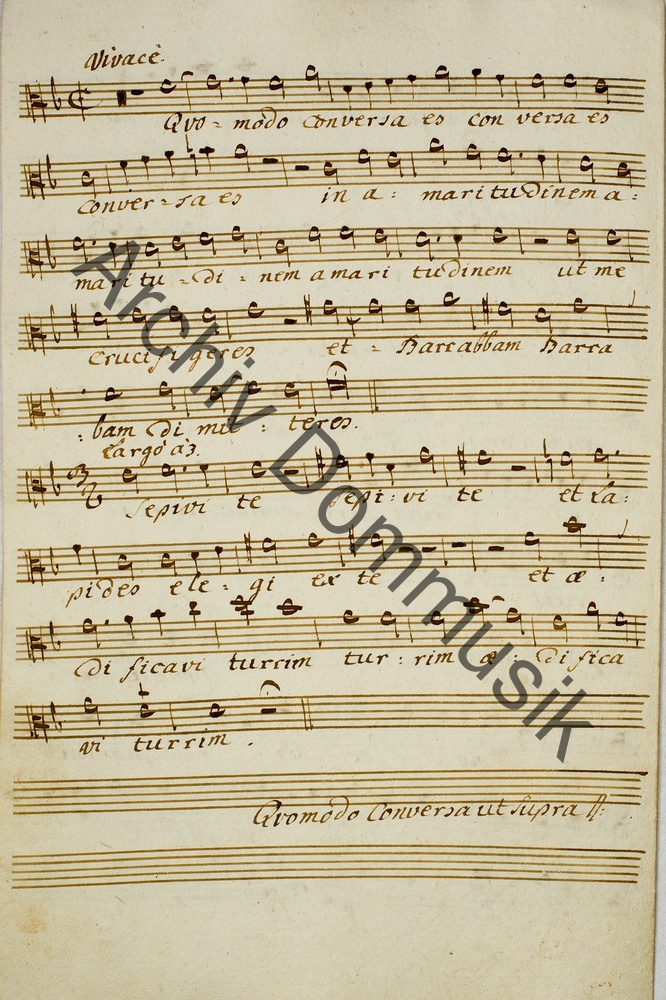 Vivacè.
Quo = modo conversa es con versa es
conver = sa es in a : maritudinem a :
maritu = di = nem amari tudinem ut me
Crucifigeres et = Barrabbam Barra
: bam di mit : teres.
Largo à 3.
Sepivi te sepi : vi te et la :
pides ele = gi ex te et æ :
di ficavi turrim tur : rim æ : di fica
vi turrim .
Quomodo Conversa ut supra
Archiv Dommusik